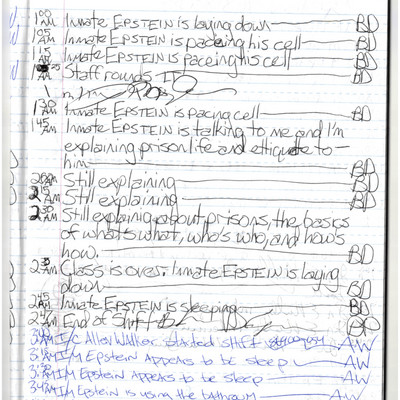 1 00 AM Inmate EPSTEIN is laying down BD
1 05 AM Inmate EPSTEIN is paceing his cell BD
1 15 AM Inmate EPSTEIN is paceing his cell BD
AM Staff rounds BD
1 30 AM Inmate EPSTEIN is pacing cell BD
1 45 AM Inmate EPSTEIN is talking to me and I'm
explaining prison life and ettiquate to
him BD
2 00 AM Still explaining BD
2 15 AM Still explaining BD
2 30 AM Still explaining about prisons, the basics
of what's what, who's who, and how's
how. BD
AM Class is over, Inmate EPSTEIN is laying
down BD
2 45 AM Inmate EPSTEIN is sleeping BD
AM End of Shift BD BD
AM I/C Allen Walker started shift AW
AM I/M Epstein appears to be sleep AW
AM I/M Epstein appears to be sleep AW
AM I/M Epstein is using the bathroom AW